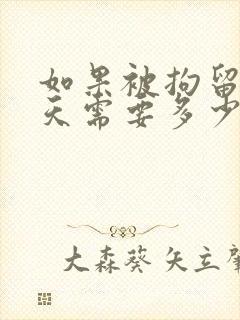 如果被拘留
天需要多少
大森葵 矢立肇